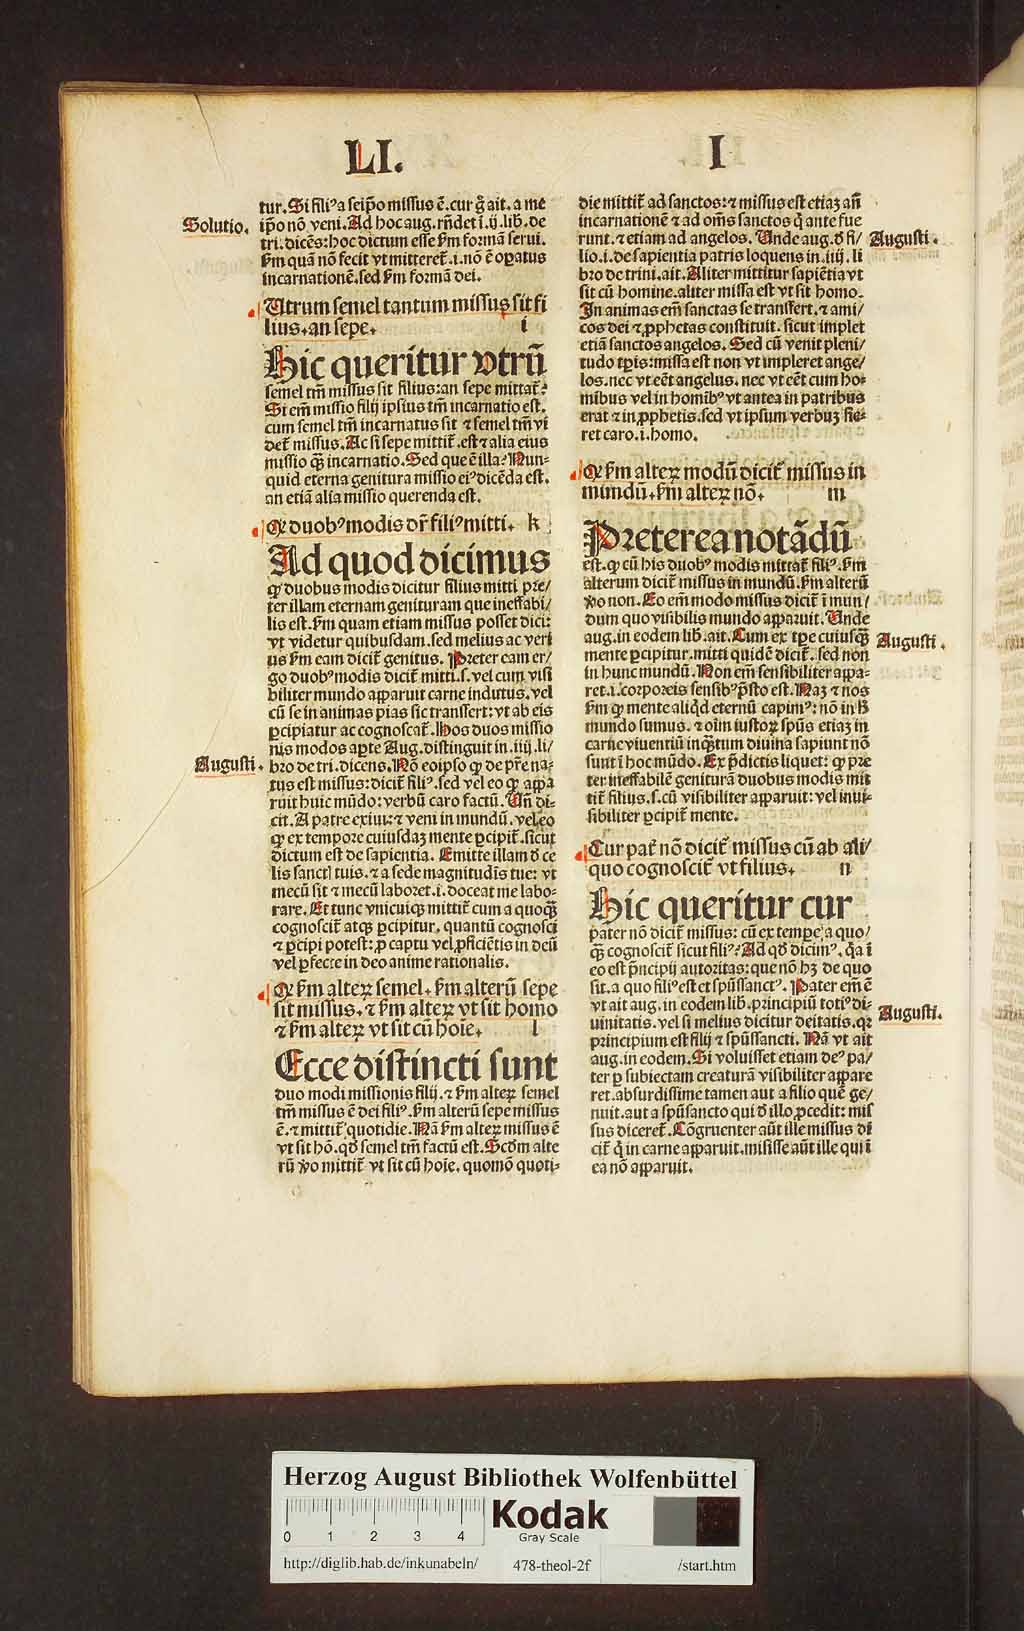 LI.
I
tur. Si filiꝰ a seip̄o missus ē. cur g̊ ait. a me
Solutio.
ip̄o nō veni. Ad hoc aug. rn̄det ī .ij. lib. de
tri. dicēs: hoc dictum esse ẜm formā serui.
ẜm quā nō fecit vt mitteret᷑. i. nō ē oꝑatus
incarnationē. sed ẜm formā dei.
Utrum semel tantum missus sit fi
lius. an sepe. i
Hic queritur vtrū
semel tm̄ missus sit filius: an sepe mittat᷑?
Si em̄ missio filij ipsius tm̄ incarnatio est.
cum semel tm̄ incarnatus sit ⁊ semel tm̄ vi
det᷑ missus. Ac si sepe mittit᷑. est ⁊ alia eius
missio q̄ꝫ incarnatio. Sed que ē illa? Nun-
quid eterna genitura missio eiꝰ dicēda est.
an etiā alia missio querenda est.
Qꝛ duobꝰ modis dr̄ filiꝰ mitti. k
Ad quod dicimus
ꝙ duobus modis dicitur filius mitti pre/
ter illam eternam genituram que ineffabi/
lis est. ẜm quam etiam missus posset dici:
vt videtur quibusdam. sed melius ac veri
us ẜm eam dicit᷑ genitus. Preter eam er/
go duobꝰ modis dicit᷑ mitti. s. vel cum visi
biliter mundo apparuit carne indutus. vel
cū se in animas pias sic transfert: vt ab eis
ꝑcipiatur ac cognoscat᷑. Hos duos missio
nis modos aꝑte Aug. distinguit in .iiij. li/
Augusti.
bro de tri. dicens. Nō eoipso ꝙ de pr̄e na-
tus est missus: dicit᷑ filiꝰ. sed vel eo ꝙ appa
ruit huic mūdo: verbū caro factū. Vn̄ di-
cit. A patre exiui: ⁊ veni in mundū. vel eo
ꝙ ex tempore cuiusdaꝫ mente ꝑcipit᷑. sicut
dictum est de sapientia. Emitte illam d̄ ce
lis sanct[is] tuis. ⁊ a sede magnitudis tue: vt
mecū sit ⁊ mecū laboret. i. doceat me labo-
rare. Et tunc vnicuiqꝫ mittit᷑ cum a quoq̄ꝫ
cognoscit᷑ atqꝫ ꝑcipitur. quantū cognosci
⁊ ꝑcipi potest: ꝓ captu vel ꝓficiētis in deū
vel ꝑfecte in deo anime rationalis.
Qꝛ ẜm alteꝝ semel. ẜm alterū sepe
sit missus. ⁊ ẜm alteꝝ vt sit homo
⁊ ẜm alteꝝ vt sit cū hoīe. l
Ecce distincti sunt
duo modi missionis filij. ⁊ ẜm alteꝝ semel
tm̄ missus ē dei filiꝰ. ẜm alterū sepe missus
ē. ⁊ mittit᷑ quotidie. Nā ẜm alteꝝ missus ē
vt sit hō. qd̄ semel tm̄ factū est. Scd̄m alte
rū ꝟo mittit᷑ vt sit cū hoīe. quomō quoti-
die mittit᷑ ad sanctos: ⁊ missus est etiaꝫ an̄
incarnationē ⁊ ad om̄s sanctos q̇ ante fue
runt. ⁊ etiam ad angelos. Unde aug. d̄ fi/
Augusti.
lio. i. de sapientia patris loquens in .iiij. li
bro de trini. ait. Aliter mittitur sapiētia vt
sit cū homine. aliter missa est vt sit homo.
In animas em̄ sanctas se transfert. ⁊ ami/
cos dei ⁊ ꝓphetas constituit. sicut implet
etiā sanctos angelos. Sed cū venit pleni/
tudo tp̄is: missa est non vt impleret ange/
los. nec vt eēt angelus. nec vt eēt cum ho-
mibus vel in homibꝰ vt antea in patribus
erat ⁊ in ꝓphetis. sed vt ipsum verbuꝫ fie-
ret caro. i. homo.
Qꝛ ẜm alteꝝ modū dicit᷑ missus in
mundū. ẜm alteꝝ nō. m
Preterea notādū
est. ꝙ cū his duobꝰ modis mittat᷑ filiꝰ. ẜm
alterum dicit᷑ missus in mundū. ẜm alterū
ꝟo non. Eo em̄ modo missus dicit᷑ ī mun/
dum quo visibilis mundo apparuit. Unde
aug. in eodem lib. ait. Cum ex tp̄e cuiusq̄ꝫ
Augusti.
mente ꝑcipitur. mitti quidē dicit᷑. sed non
in hunc mundū. Non em̄ sensibiliter appa-
ret. i. corporeis sensibꝰ p̄sto est. Naꝫ ⁊ nos
ẜm ꝙ mente aliq̇d eternū capimꝰ: nō in h̄
mundo sumus. ⁊ oīm iustoꝝ spūs etiaꝫ in
carne viuentiū inq̄ꝫtum diuina sapiunt nō
sunt ī hoc mūdo. Ex p̄dictis liquet: ꝙ pre
ter ineffabilē geniturā duobus modis mit
tit᷑ filius. s. cū visibiliter apparuit: vel inui-
sibiliter ꝑcipit᷑ mente.
Cur pat᷑ nō dicit᷑ missus cū ab ali/
quo cognoscit᷑ vt filius. n
Hic queritur cur
pater nō dicit᷑ missus: cū ex tempe a quo/
q̄ꝫ cognoscit᷑ sicut filiꝰ? Ad qd̄ dicimꝰ. q̇a ī
eo est p̄ncipij autoritas: que nō hꝫ de quo
sit. a quo filiꝰ est et spūssanctꝰ. Pater em̄ ē
vt ait aug. in eodem lib. principiū totiꝰ di-
Augusti.
uinitatis. vel si melius dicitur deitatis. qꝛ
principium est filij ⁊ spūssancti. Nā vt ait
aug. in eodem. Si voluisset etiam deꝰ pa/
ter ꝑ subiectam creaturā visibiliter appare
ret. absurdissime tamen aut a filio quē ge/
nuit. aut a spūsancto qui d̄ illo ꝓcedit: mis
sus diceret᷑. Cōgruenter aūt ille missus di
cit᷑ q̇ in carne apparuit. misisse aūt ille qui ī
ea nō apparuit.
Herzog August Bibliothek Wolfenbüttel
0 1 2 3 4
Kodak
Gray Scale
http://diglib.hab.de/inkunabeln/ 478-theol-2f /start.htm